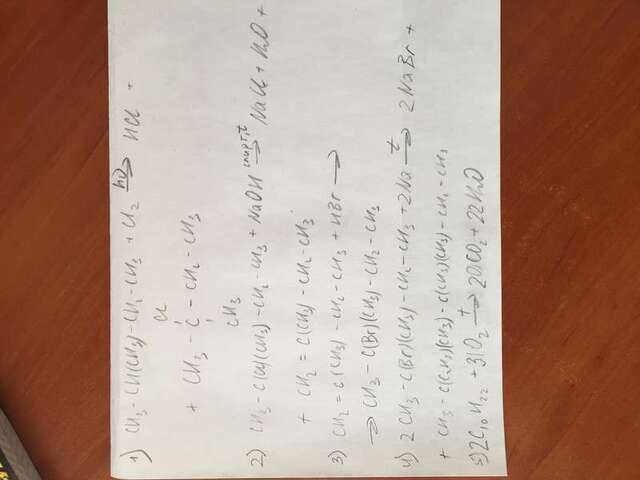 1) CH3 - CH(CH3) - CH2 - CH3 + Cl2 hν→ HCl +
Cl
+ CH3 - C - CH2 - CH3
CH3
2) CH3 - C(Cl)(CH3) - CH2 - CH3 + NaOH спирт, t→ NaCl + H2O +
+ CH2 = C(CH3) - CH2 - CH3
3) CH2 = C(CH3) - CH2 - CH3 + HBr →
→ CH3 - C(Br)(CH3) - CH2 - CH3
4) 2 CH3 - C(Br)(CH3) - CH2 - CH3 + 2Na t→ 2NaBr +
+ CH3 - C(CH3)(CH3) - C(CH3)(CH3) - CH2 - CH3
5) 2C10H22 + 31O2 t→ 20CO2 + 22H2O